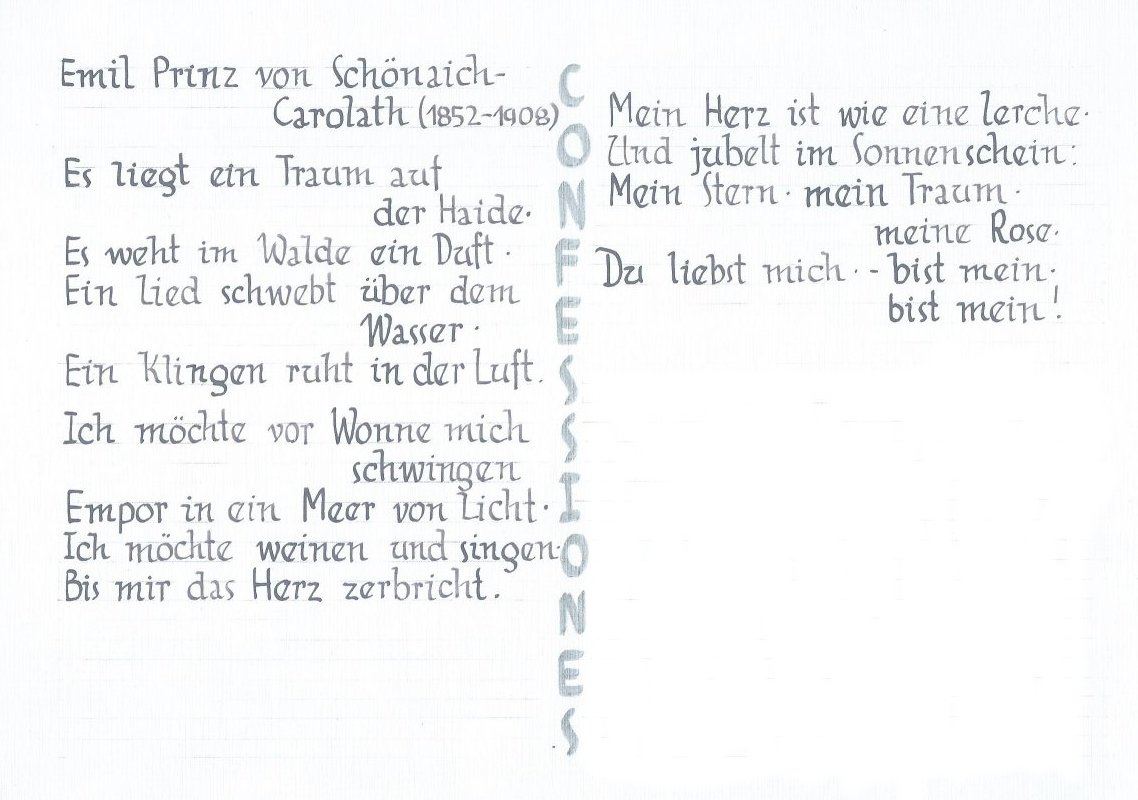 Emil Prinz von Schönaich-
Carolath (1852-1908)
Es liegt ein Traum auf
der Haide.
Es weht im Walde ein Duft.
Ein Lied schwebt über dem
Wasser.
Ein Klingen ruht in der Luft.
Ich möchte vor Wonne mich
schwingen
Empor in ein Meer von Licht.
Ich möchte weinen und singen.
Bis mir das Herz zerbricht.
CONFESSIONES
Mein Herz ist wie eine Lerche.
Und jubelt im Sonnenschein:
Mein Stern. mein Traum.
meine Rose.
Du liebst mich. - bist mein.
bist mein!